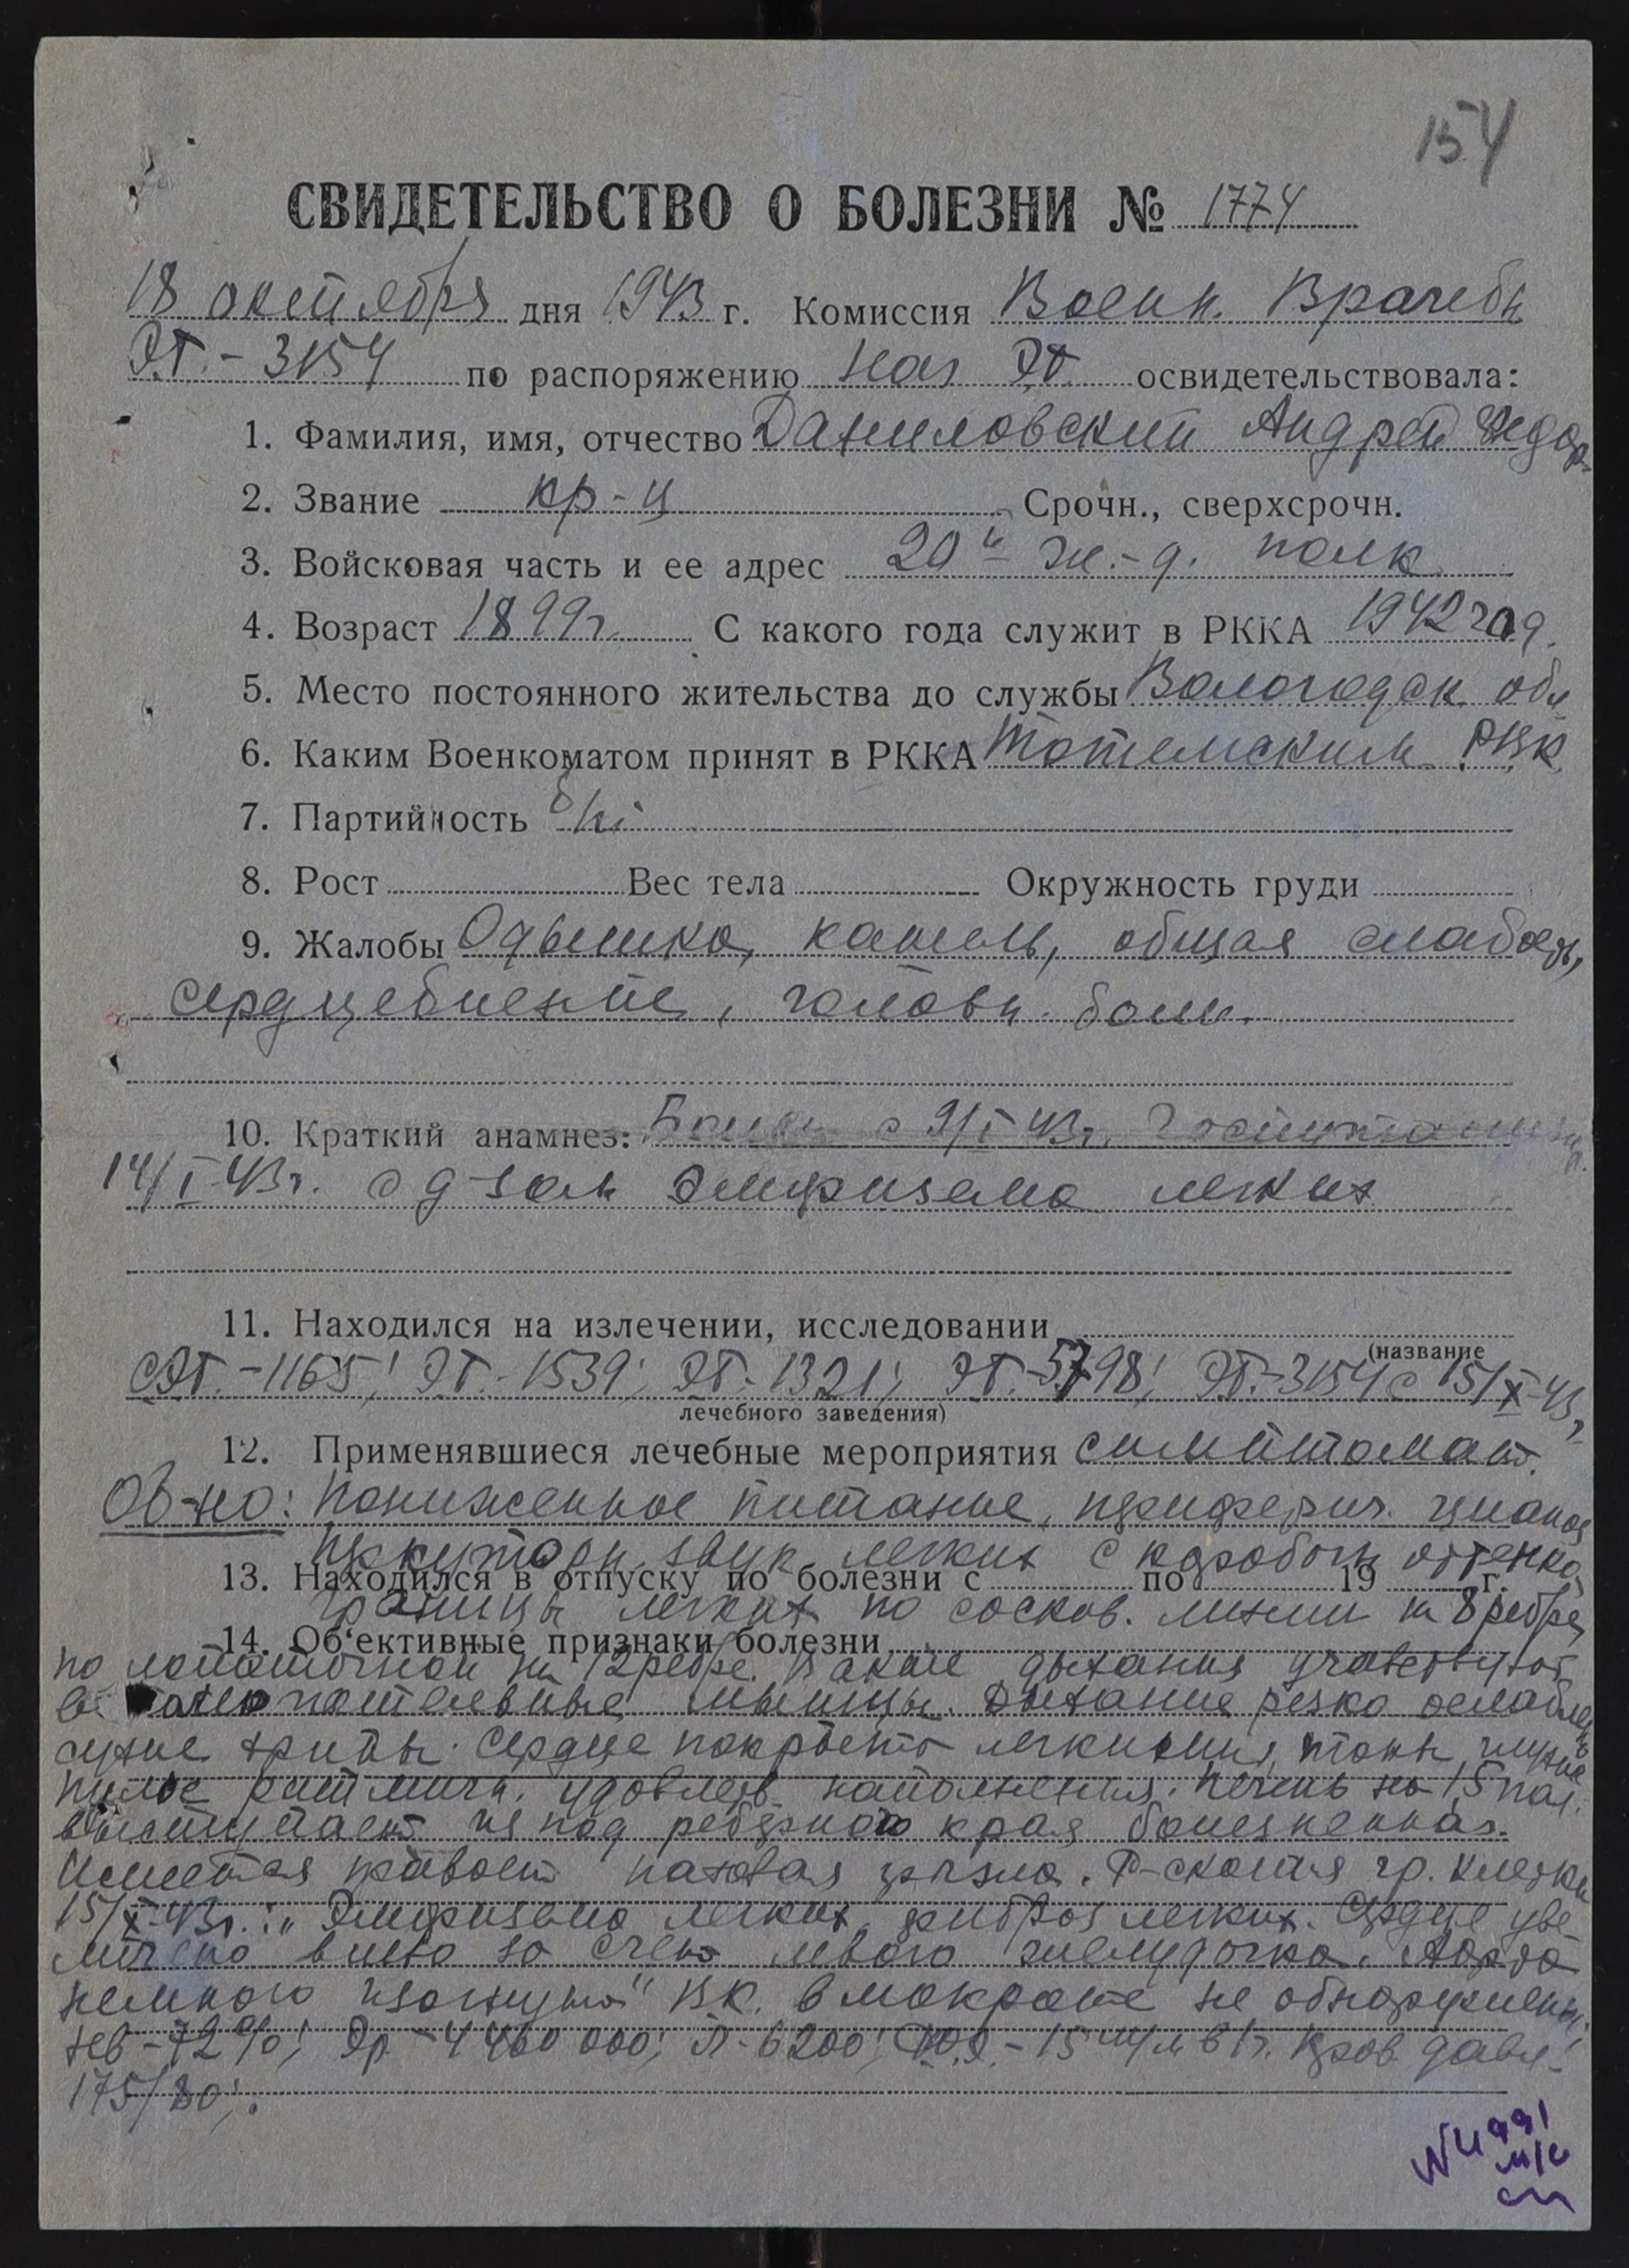 154
СВИДЕТЕЛЬСТВО О БОЛЕЗНИ № 1774
18 октября дня 1943 г. Комиссия Военн. Врачебн
ЭГ.-3154 по распоряжению нач ЭГ освидетельствовала:
1. Фамилия, имя, отчество Даниловский Андрей Федор.
2. Звание кр-ц Срочн., сверхсрочн.
3. Войсковая часть и ее адрес 20й ж.-д. полк
4. Возраст 1899г. С какого года служит в РККА 1942 год.
5. Место постоянного жительства до службы Вологодск. обл
6. Каким Военкоматом принят в РККА Тотемским РВК.
7. Партийность б/п
8. Рост Вес тела Окружность груди
9. Жалобы Одышка, кашель, общая слабость,
сердцебиение, головн. боли.
10. Краткий анамнез: Болен с 9/I 43г.
14/I-43г. с д-зом эмфизема легких
11. Находился на излечении, исследовании
(название
СЭГ.-1165; ЭГ.-1539; ЭГ.-1321; ЭГ.-5798; ЭГ.-3154 с 15/X-43г
лечебного заведения)
12. Применявшиеся лечебные мероприятия симптомат.
Об-но: Пониженное питание, периферич. цианоз
перкуторн. звук легких с коробочн оттенко
13. Находился в отпуску по болезни с по 19 г.
границы легких по сосков. линии на 8 ребре
14. Об'ективные признаки болезни
по лопаточной на 12 ребре. В акте дыхания участвуют
мышцы. Дыхание резко ослаблен
сухие хрипы. Сердце покрыто легкими, тоны глухие
пульс ритмичн. удовлетв. наполнения. Печень на 1,5 пал.
выступает из под реберного края болезненная.
Имеется правост. паховая грыжа. Р-скопия гр. клетки
15/X-43г.: "Эмфизема легких, фиброз легких. Сердце уве-
личено влево за счет левого желудочка. Аорта
немного изогнута" ВК. в мокроте не обнаружены;
Нев-72%; Эр-4460000; Л-6200; РОЭ.-15 м/м в 1ч. Кров давл.
175/80;.
N 4991